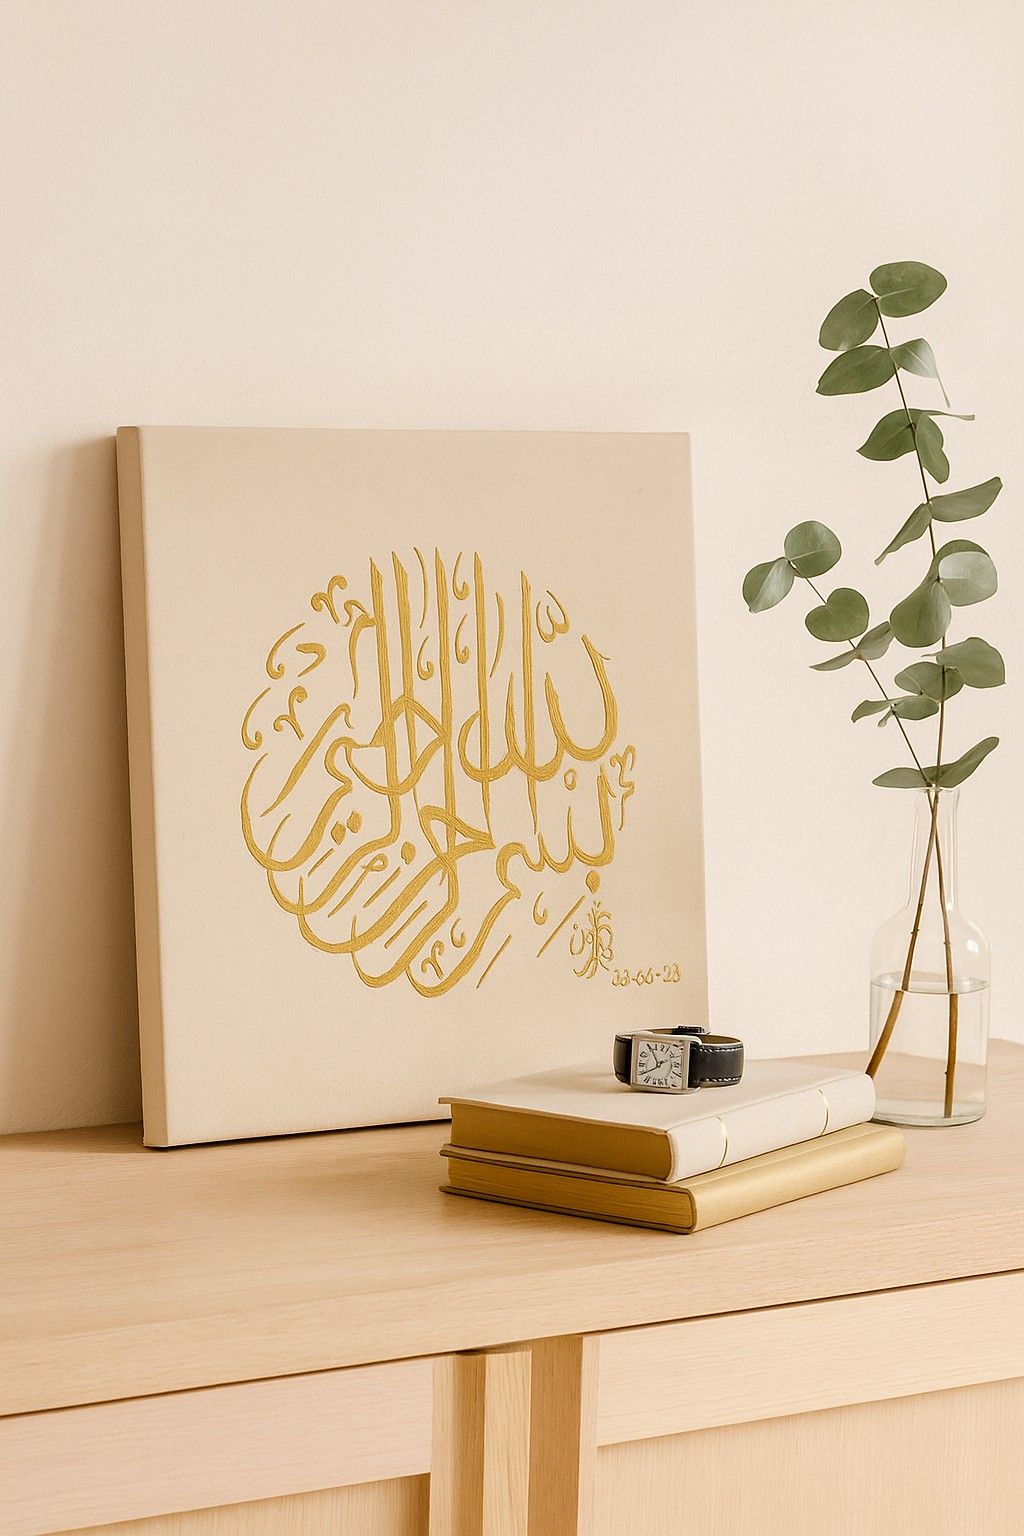 بسم الله الرحمن الرحيم
23-06-23